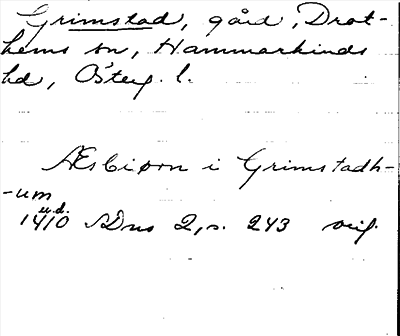 Grimstad, gård, Drot-
hems sn, Hammarkinds
hd, Österg. l.
Æsbiorn i Grimstadh-
-um
u.d.
1410 SDns 2, s. 243 orig.